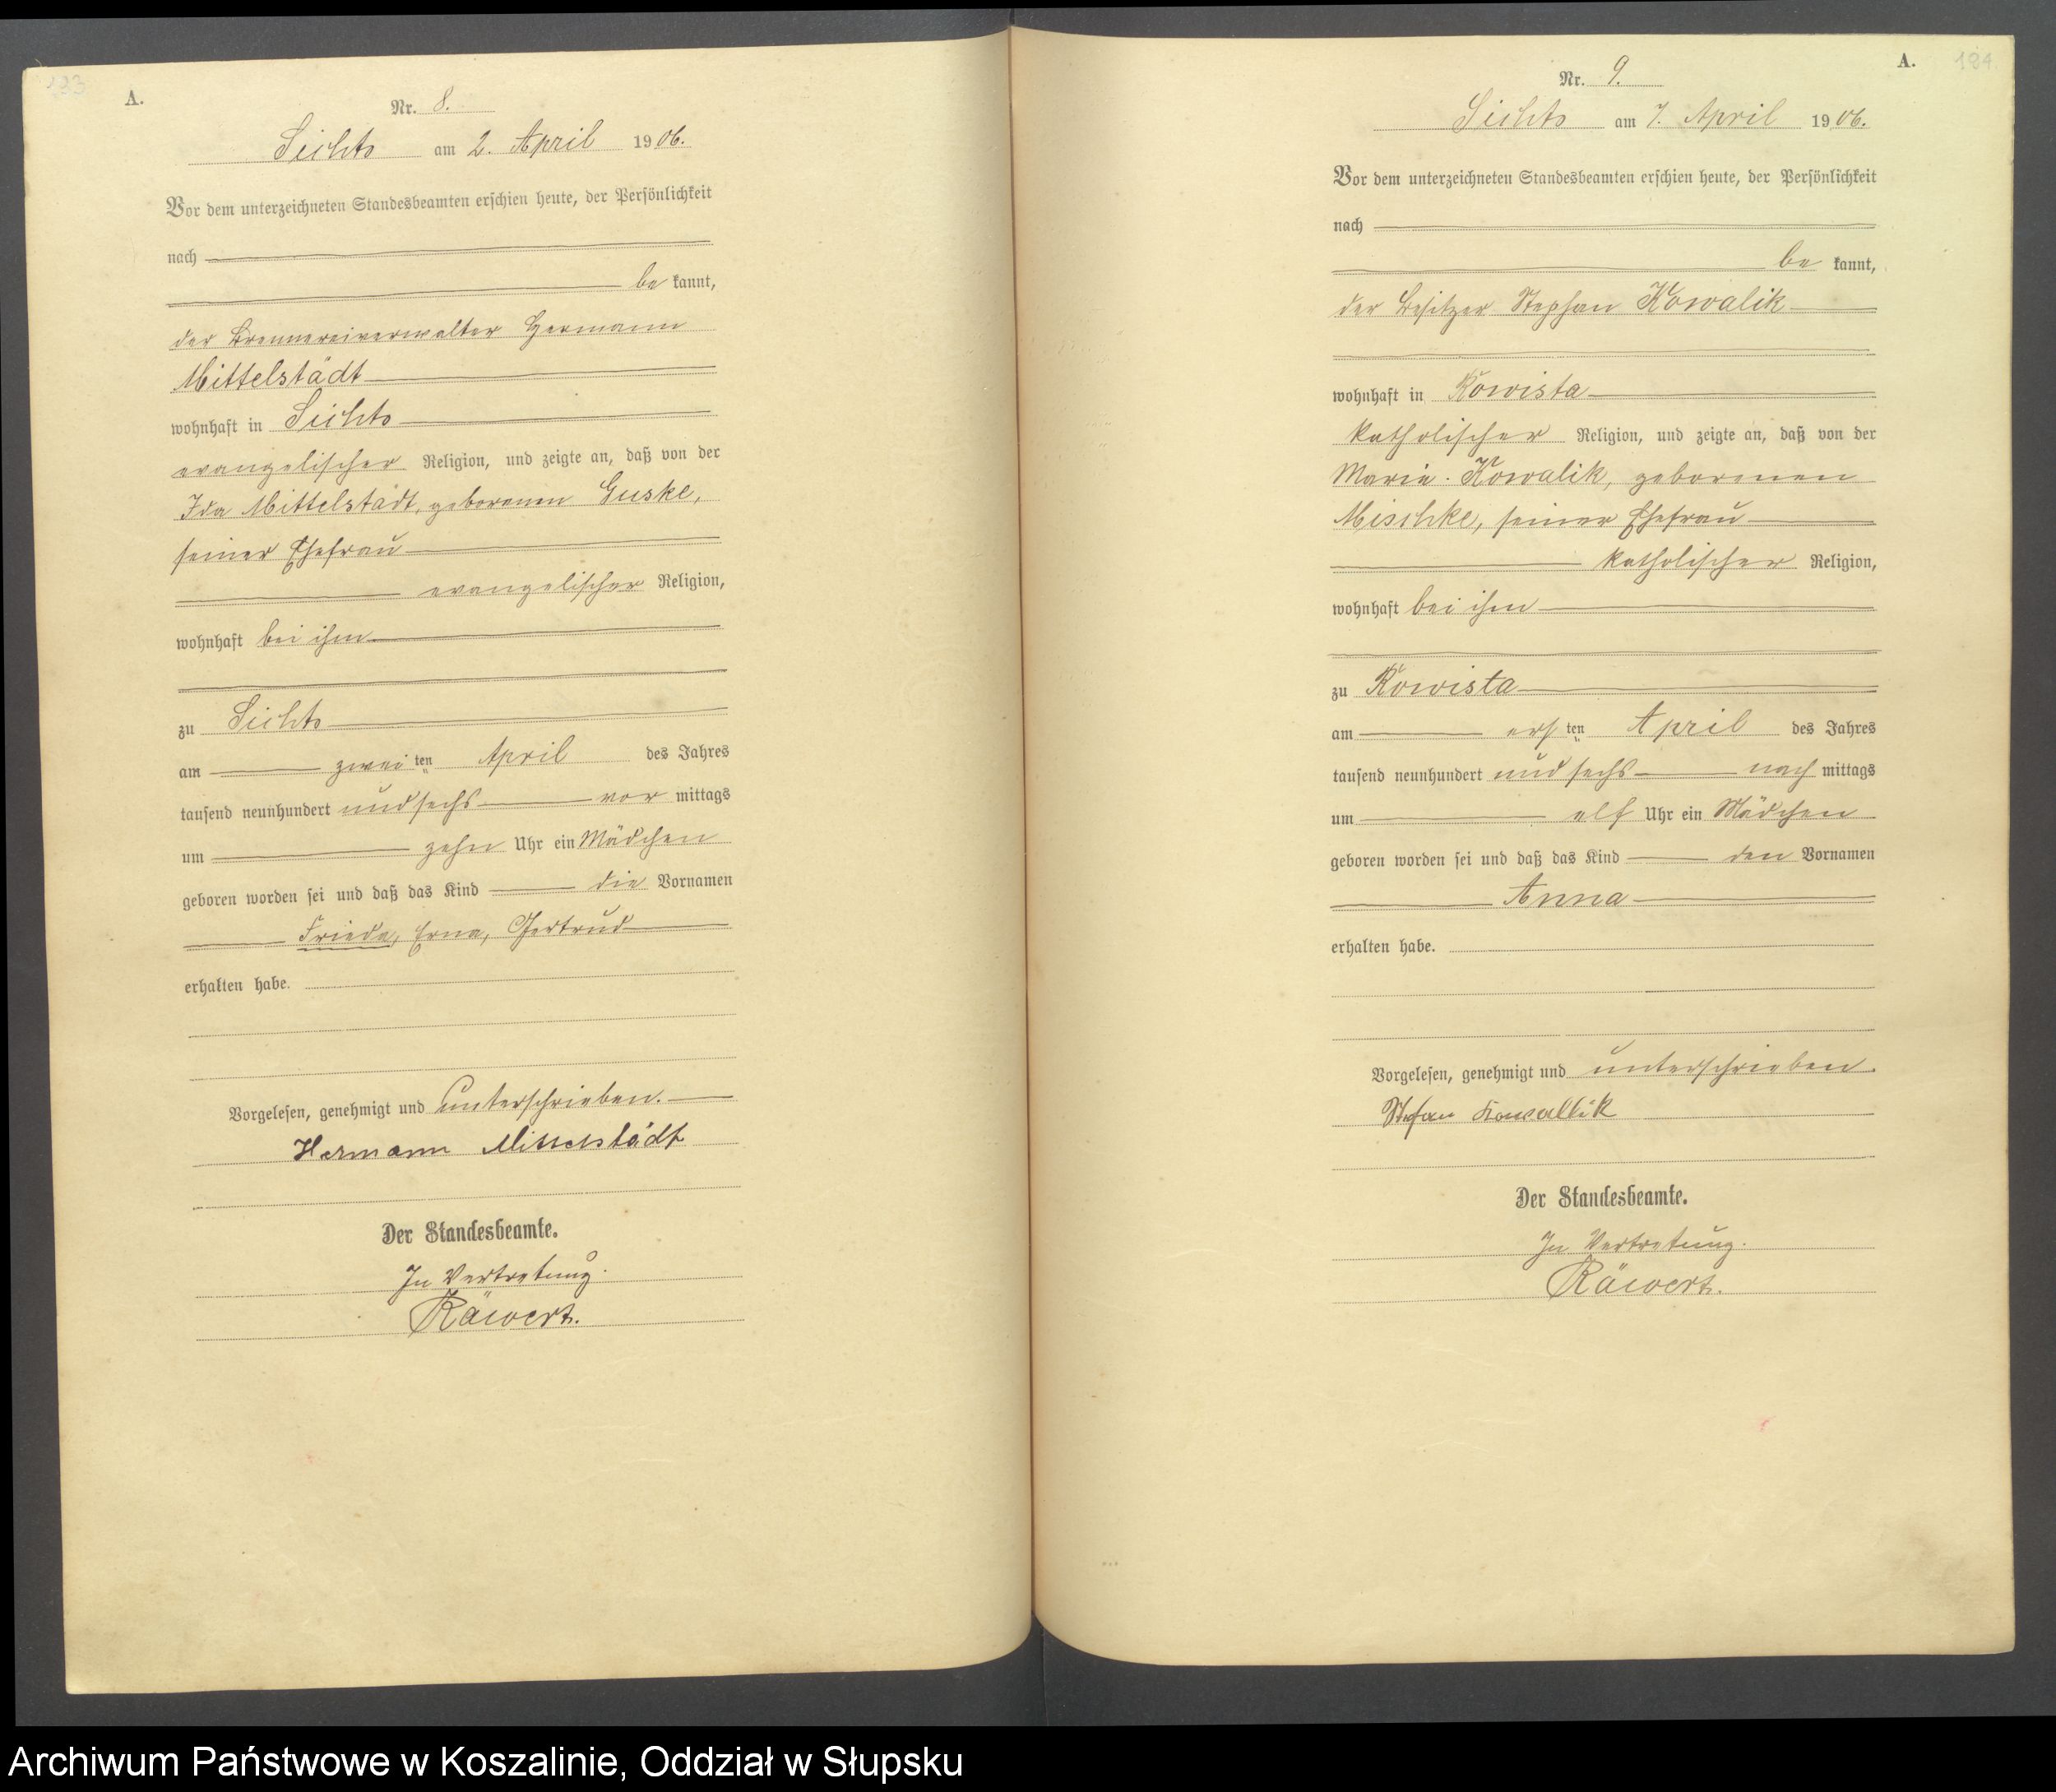 133
A.
Nr. 8.
Sichts am 2. April 1906.
Vor dem unterzeichneten Standesbeamten erschien heute, der Persönlichkeit
nach
be kannt,
der Brennereiverwalter Hermann
Mittelstädt
wohnhaft in Sichts
evangelischer Religion, und zeigte an, daß von der
Ida Mittelstädt, geborenen Guske,
seiner Ehefrau
evangelischer Religion,
wohnhaft bei ihm
zu Sichts
am zwei ten April des Jahres
tausend neunhundert und sechs vor mittags
um zehn Uhr ein Mädchen
geboren worden sei und daß das Kind die Vornamen
Frieda, Erna, Gertrud
erhalten habe.
Vorgelesen, genehmigt und unterschrieben.
Hermann Mittelstädt
Der Standesbeamte.
In Vertretung.
Räwert.
A. 134.
Nr. 9.
Sichts am 7. April 1906.
Vor dem unterzeichneten Standesbeamten erschien heute, der Persönlichkeit
nach
be kannt,
der Besitzer Stephan Kowalik
wohnhaft in Kowista
katholischer Religion, und zeigte an, daß von der
Marie Kowalik, geborenen
Mischke, seiner Ehefrau
katholischer Religion,
wohnhaft bei ihm
zu Kowista
am ers ten April des Jahres
tausend neunhundert und sechs nach mittags
um elf Uhr ein Mädchen
geboren worden sei und daß das Kind den Vornamen
Anna
erhalten habe.
Vorgelesen, genehmigt und unterschrieben.
Stefan Kowallik
Der Standesbeamte.
In Vertretung.
Räwert.
Archiwum Państwowe w Koszalinie, Oddział w Słupsku